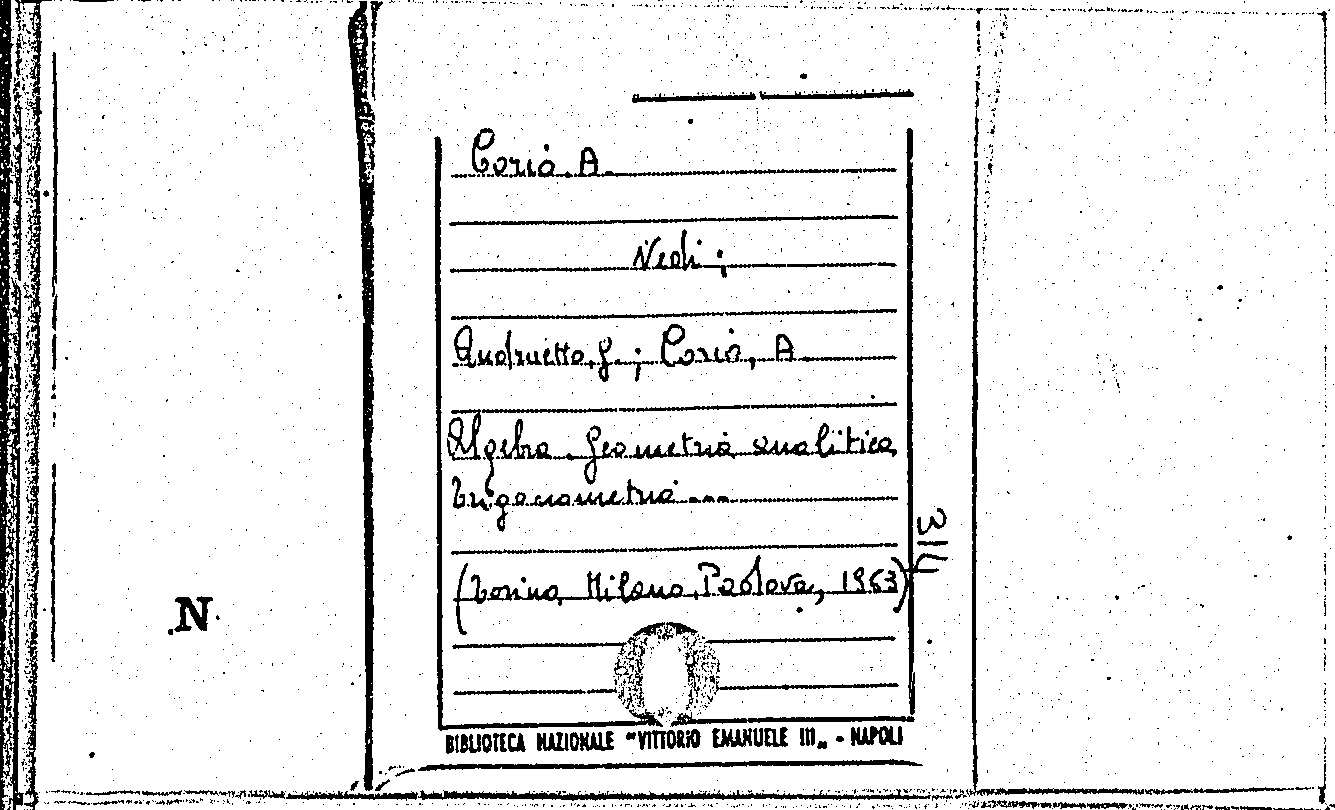 Coriò. A.
Vedi;
Andruetto, G.; Coriò, A.
Algebra. Geometria analitica
Trigonometria ....
(Torino, Milano, Padova, 1963)
314
N
BIBLIOTECA NAZIONALE "VITTORIO EMANUELE III„ - NAPOLI